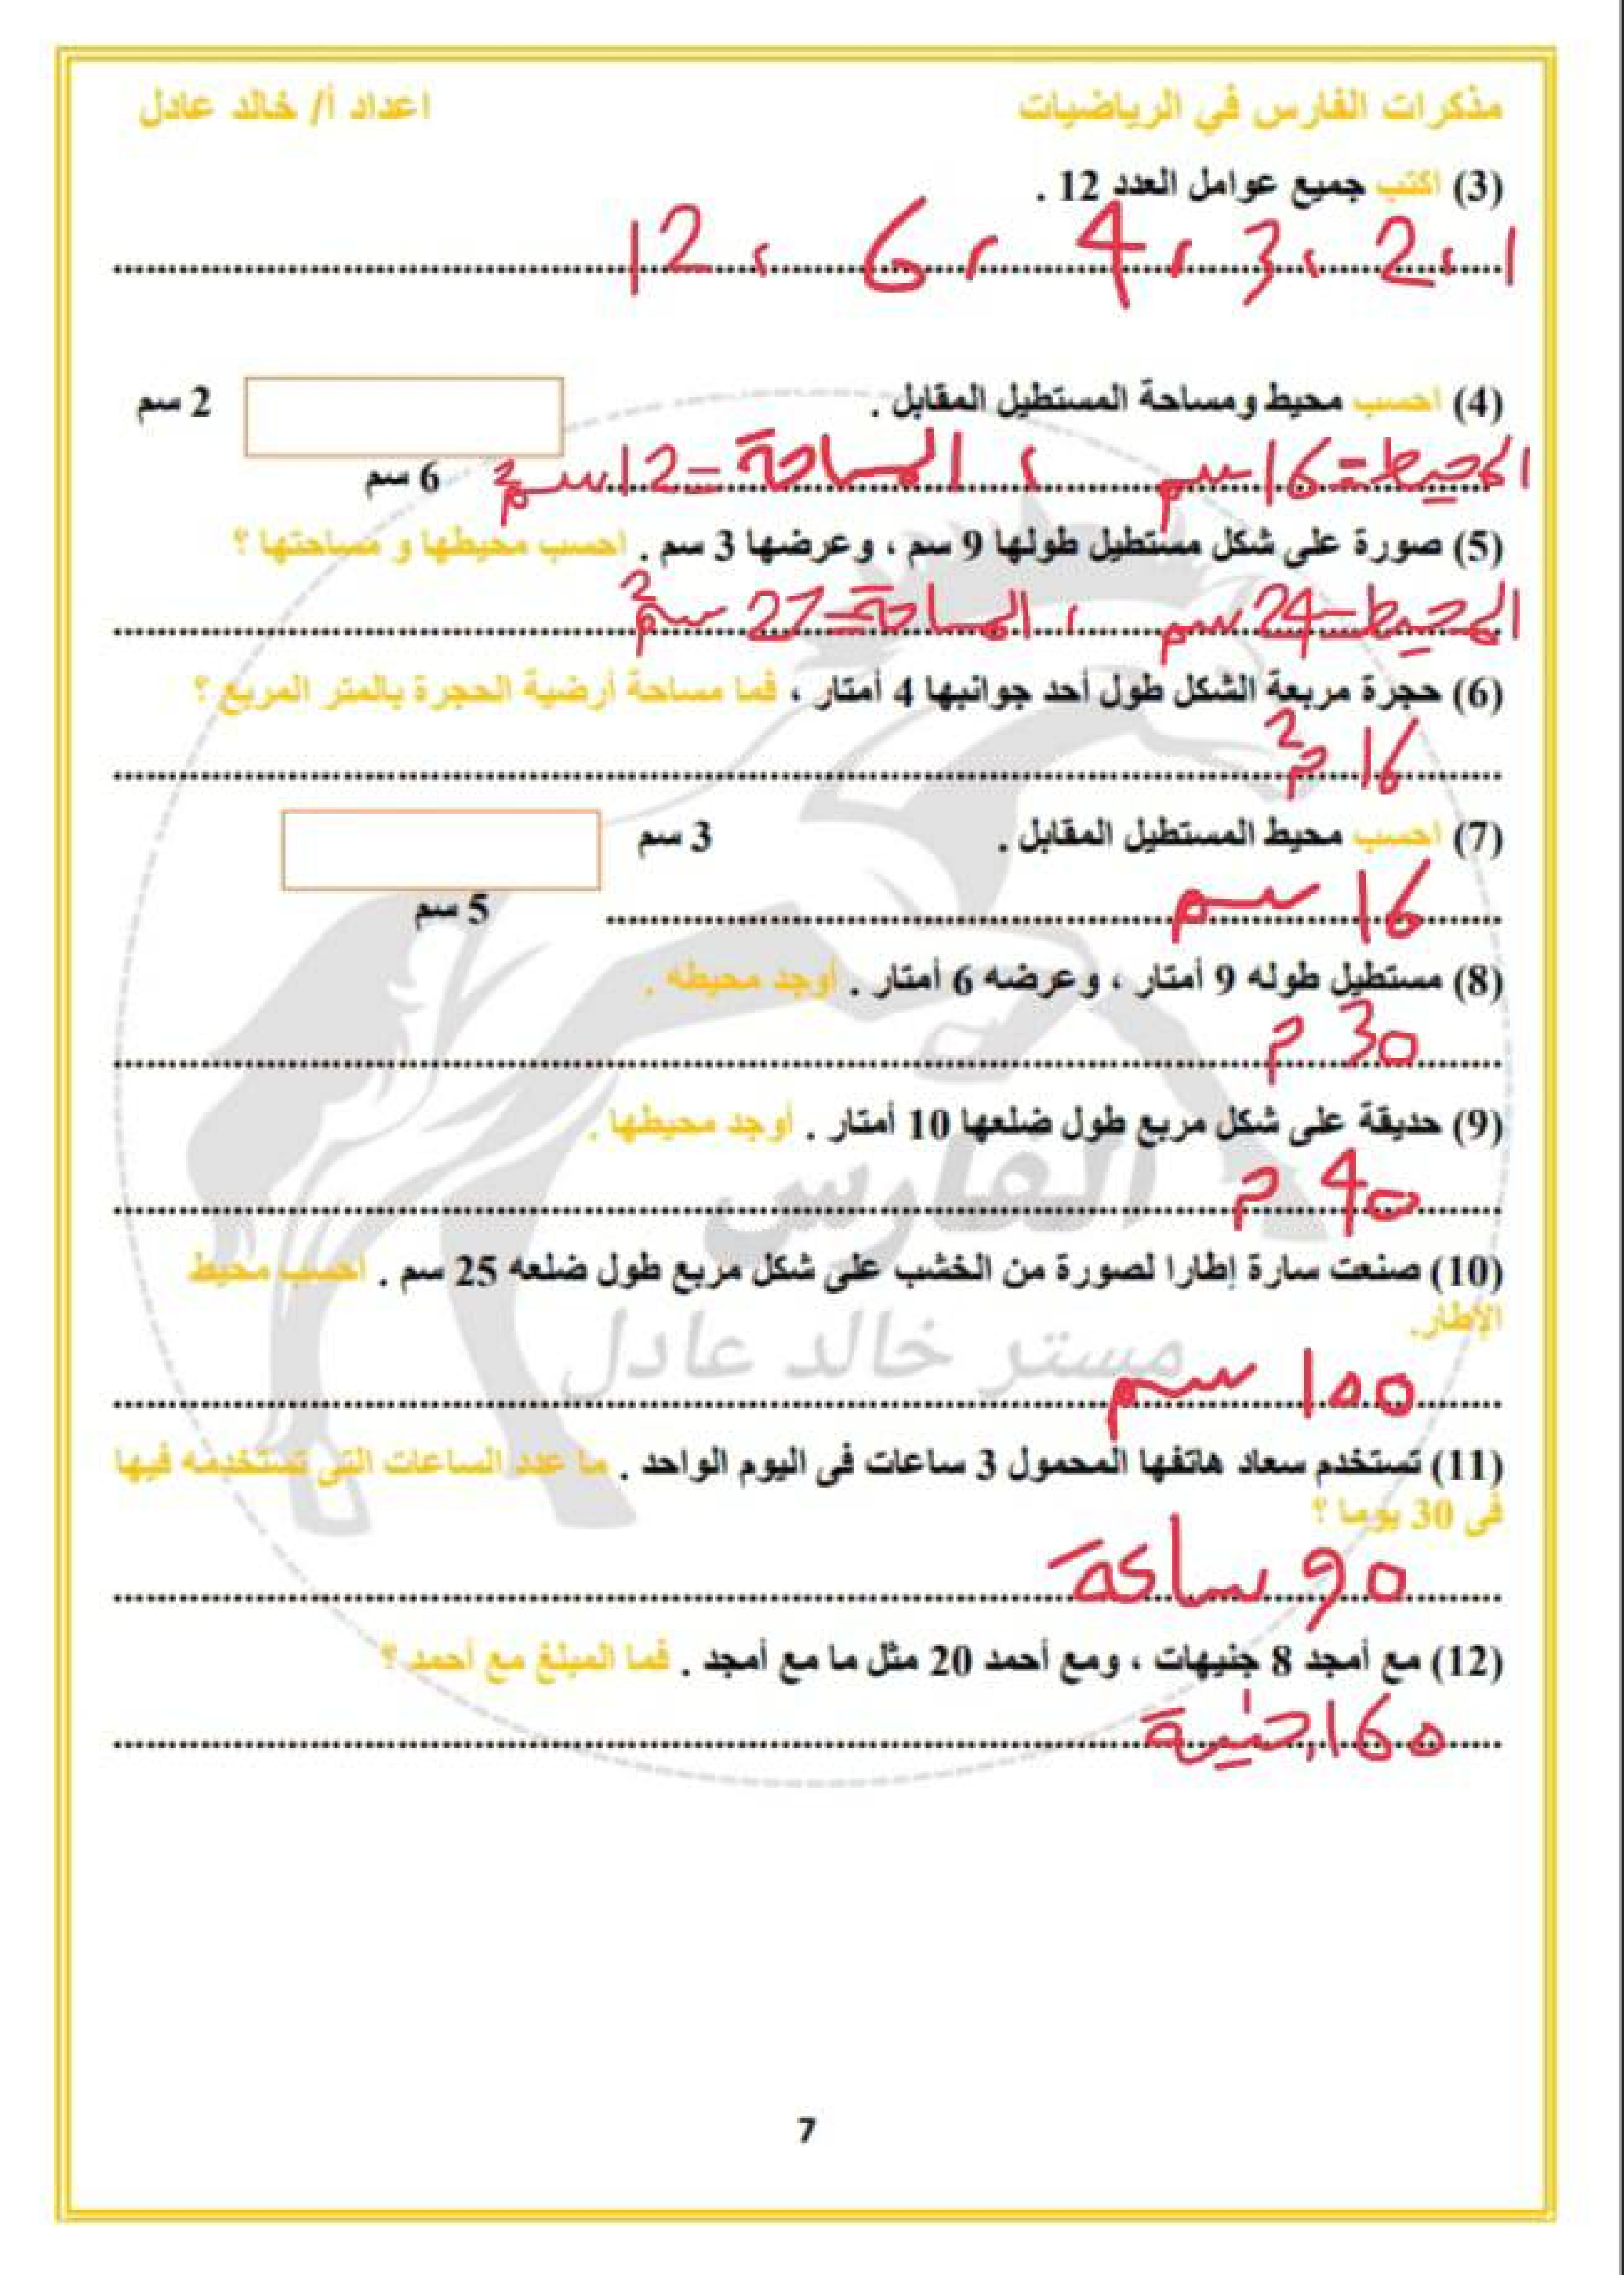 مذكرات الفارس في الرياضيات
اعداد أ/ خالد عادل
(3) اكتب جميع عوامل العدد 12 .
1 ، 2 ، 3 ، 4 ، 6 ، 12
(4) احسب محيط ومساحة المستطيل المقابل .
2 سم
6 سم
المحيط = 16 سم ، المساحة = 12 سم²
(5) صورة على شكل مستطيل طولها 9 سم ، وعرضها 3 سم . احسب محيطها و مساحتها ؟
المحيط = 24 سم ، المساحة = 27 سم²
(6) حجرة مربعة الشكل طول أحد جوانبها 4 أمتار ، فما مساحة أرضية الحجرة بالمتر المربع ؟
16 م²
(7) احسب محيط المستطيل المقابل .
3 سم
5 سم
16 سم
(8) مستطيل طوله 9 أمتار ، وعرضه 6 أمتار . أوجد محيطه .
30 م
(9) حديقة على شكل مربع طول ضلعها 10 أمتار . أوجد محيطها .
40 م
(10) صنعت سارة إطارا لصورة من الخشب على شكل مربع طول ضلعه 25 سم . احسب محيط
الإطار.
100 سم
(11) تستخدم سعاد هاتفها المحمول 3 ساعات فى اليوم الواحد . ما عدد الساعات التى تستخدمه فيها
فى 30 يوما ؟
90 ساعة
(12) مع أمجد 8 جنيهات ، ومع أحمد 20 مثل ما مع أمجد . فما المبلغ مع أحمد ؟
160 جنية
الفارس
مستر خالد عادل
7